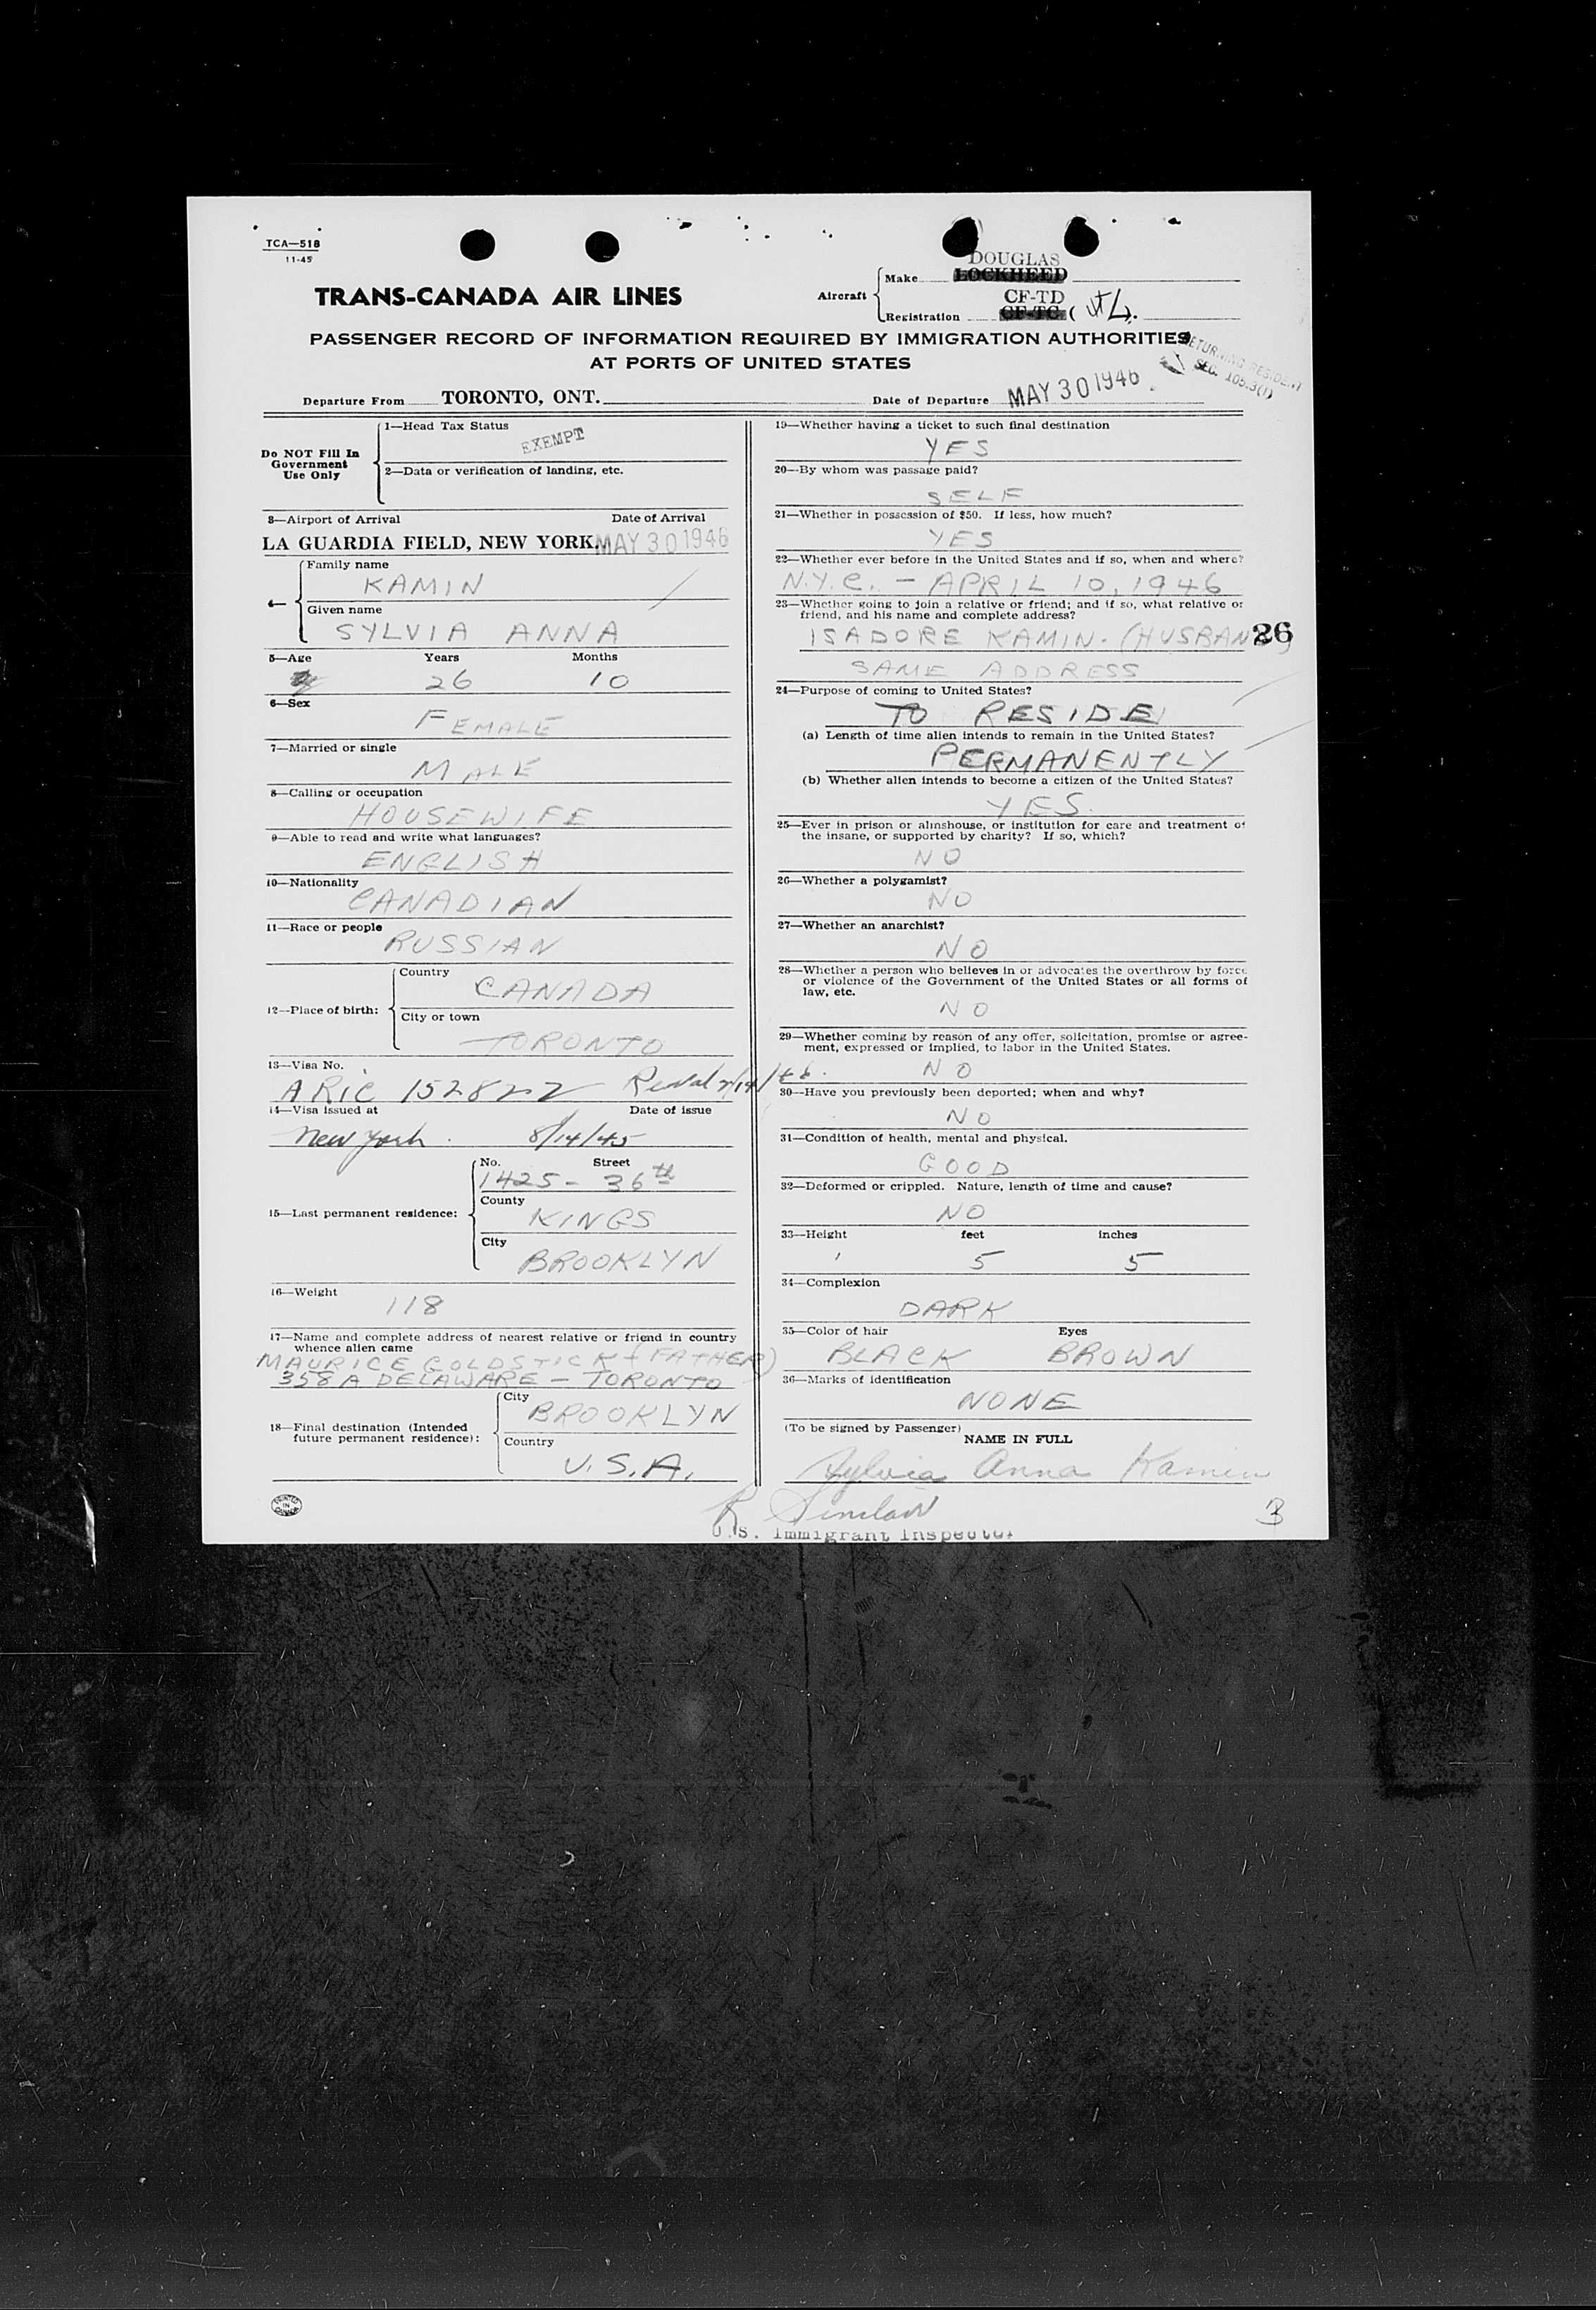 TCA—518
11-45
DOUGLAS
Make LOCKHEED
TRANS-CANADA AIR LINES
Aircraft
CF-TD
Registration CF-TC (
PASSENGER RECORD OF INFORMATION REQUIRED BY IMMIGRATION AUTHORITIES
AT PORTS OF UNITED STATES
RETURNING RESIDENT
SEC. 105.3(1)
Departure From TORONTO, ONT.
Date of Departure MAY 30 1946
Do NOT Fill In
Government
Use Only
1—Head Tax Status
EXEMPT
2—Data or verification of landing, etc.
3—Airport of Arrival Date of Arrival
LA GUARDIA FIELD, NEW YORK. MAY 30 1946
4—
Family name
KAMIN
Given name
SYLVIA ANNA
5—Age Years Months
26 10
6—Sex
FEMALE
7—Married or single
MALE
8—Calling or occupation
HOUSEWIFE
9—Able to read and write what languages?
ENGLISH
10—Nationality
CANADIAN
11—Race or people
RUSSIAN
12—Place of birth:
Country
CANADA
City or town
TORONTO
13—Visa No.
ARIC 152822
14—Visa issued at Date of issue
New York. 8/14/45
15—Last permanent residence:
No. Street
1425 - 36th
County
KINGS
City
BROOKLYN
16—Weight
118
17—Name and complete address of nearest relative or friend in country
whence alien came
MAURICE GOLDSTICK - (FATHER)
358A DELAWARE - TORONTO
18—Final destination (Intended
future permanent residence):
City
BROOKLYN
Country
U.S.A.
PRINTED
IN
CANADA
19—Whether having a ticket to such final destination
YES
20—By whom was passage paid?
SELF
21—Whether in possession of $50. If less, how much?
YES
22—Whether ever before in the United States and if so, when and where?
N.Y.C. - APRIL 10, 1946
23—Whether going to join a relative or friend; and if so, what relative or
friend, and his name and complete address?
ISADORE KAMIN. (HUSBAND)
26
SAME ADDRESS
24—Purpose of coming to United States?
TO RESIDE
(a) Length of time alien intends to remain in the United States?
PERMANENTLY
(b) Whether alien intends to become a citizen of the United States?
YES.
25—Ever in prison or almshouse, or institution for care and treatment of
the insane, or supported by charity? If so, which?
NO
26—Whether a polygamist?
NO
27—Whether an anarchist?
NO
28—Whether a person who believes in or advocates the overthrow by force
or violence of the Government of the United States or all forms of
law, etc.
NO
29—Whether coming by reason of any offer, solicitation, promise or agree-
ment, expressed or implied, to labor in the United States.
NO
30—Have you previously been deported; when and why?
NO
31—Condition of health, mental and physical.
GOOD
32—Deformed or crippled. Nature, length of time and cause?
NO
33—Height feet inches
5 5
34—Complexion
DARK
35—Color of hair Eyes
BLACK BROWN
36—Marks of identification
NONE
(To be signed by Passenger)
NAME IN FULL
Sylvia Anna Kamin
R Sinclair
U.S. Immigrant Inspector
3